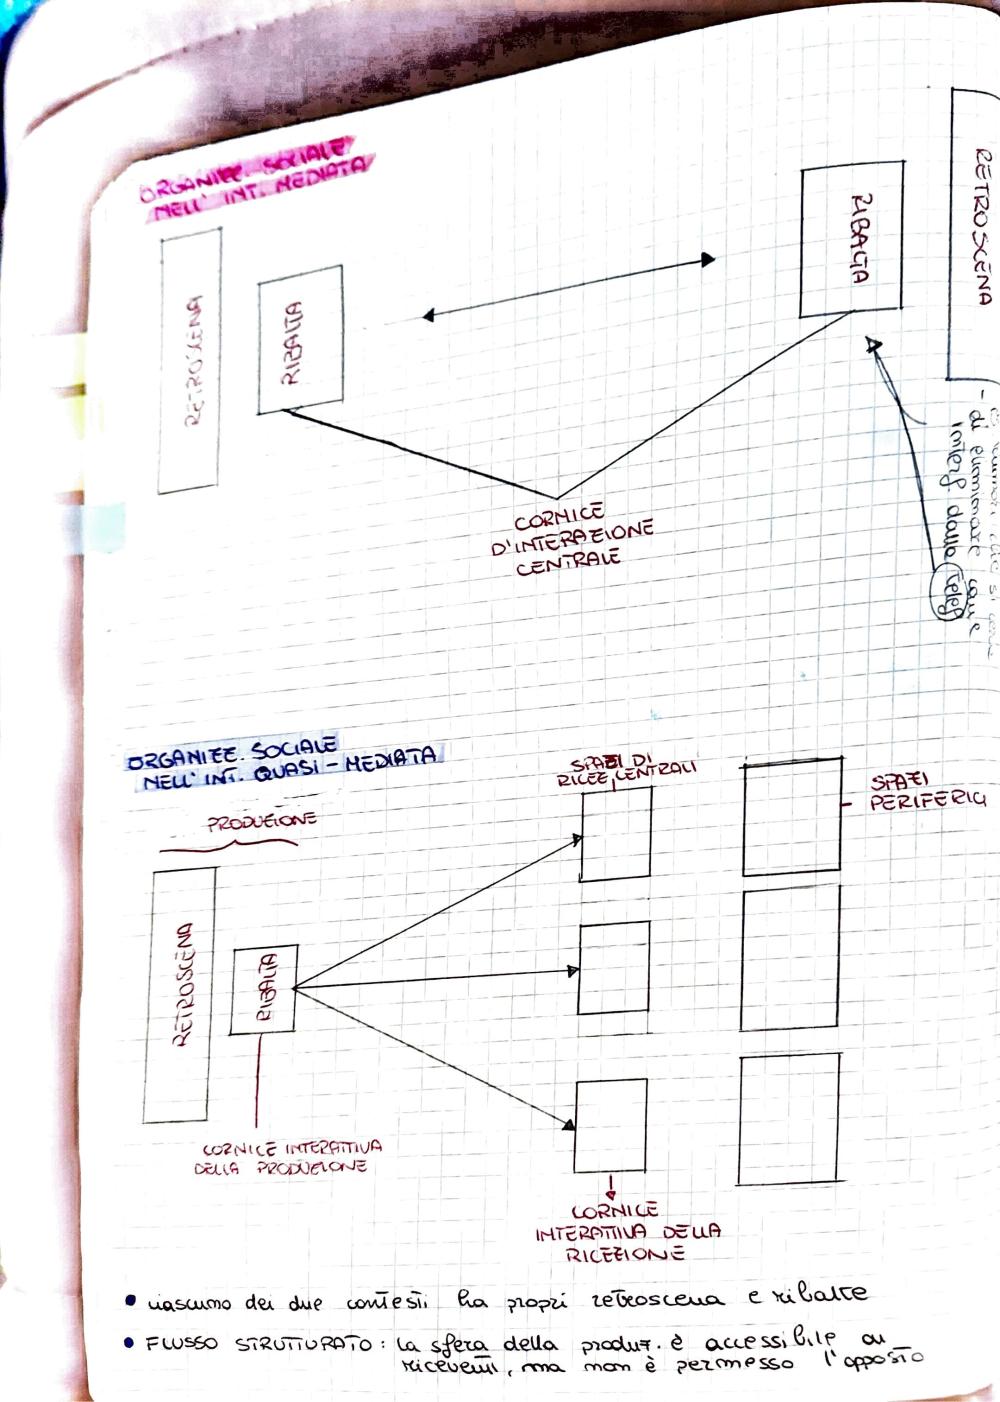 ORGANIZZ. SOCIALE
NELL' INT. MEDIATA
RETROSCENA
RIBALTA
RIBALTA
RETROSCENA
- di eliminare
interf. dalla telef
CORNICE
D'INTERAZIONE
CENTRALE
ORGANIZZ. SOCIALE
NELL' INT. QUASI-MEDIATA
PRODUZIONE
RETROSCENA
RIBALTA
CORNICE INTERATTIVA
DELLA PRODUZIONE
SPAZI DI
RICEZ. CENTRALI
SPAZI
PERIFERICI
CORNICE
INTERATTIVA DELLA
RICEZIONE
• ciascuno dei due contesti ha propri retroscena e ribalte
• FLUSSO STRUTTURATO: la sfera della produz. è accessibile ai
riceventi, ma non è permesso l'opposto